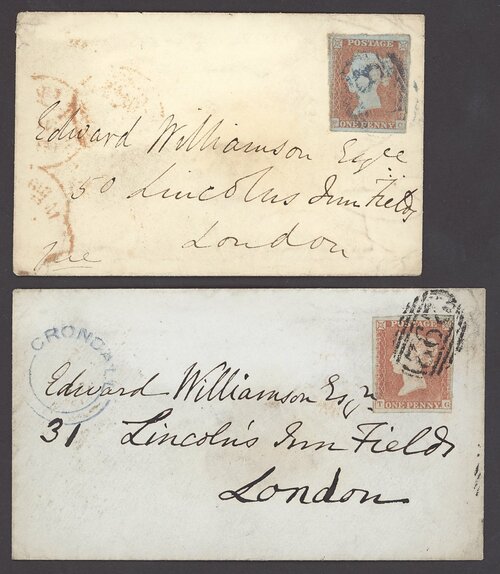 POSTAGE
8
ONE PENNY
Edward Williamson Esqre
50 Lincolns Inn Fields
London
CRONDALL
POSTAGE
T ONE PENNY G
Edward Williamson Esqr
31 Lincoln's Inn Fields
London